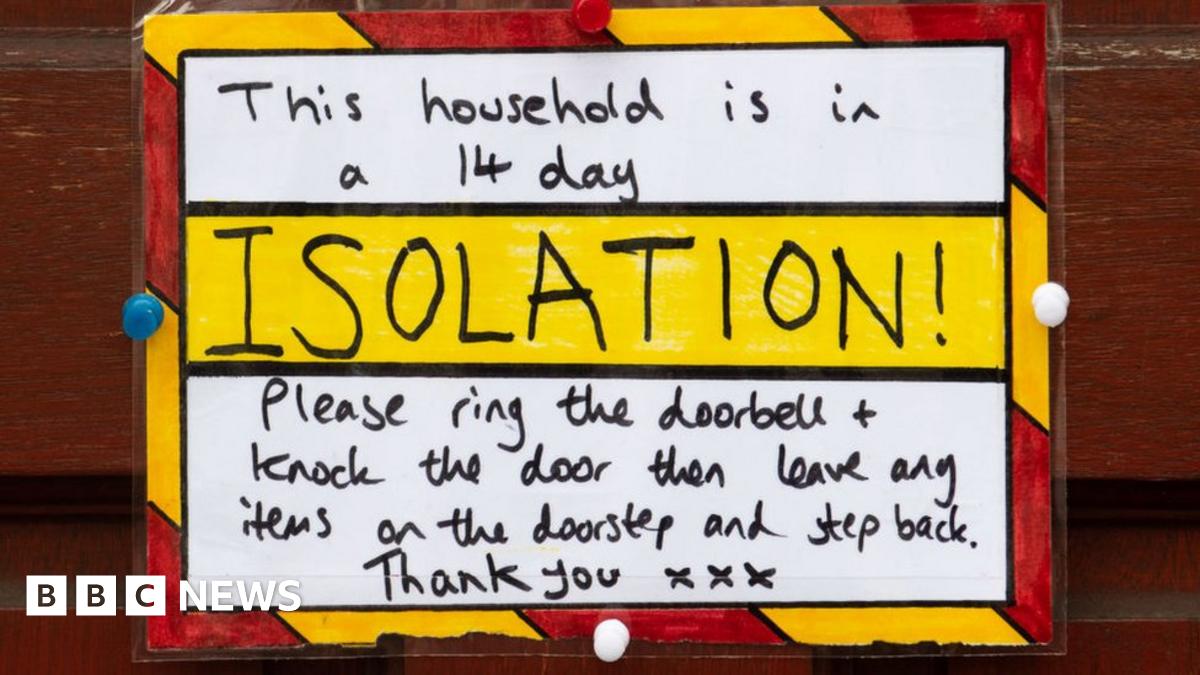 This household is in
a 14 day
ISOLATION!
Please ring the doorbell +
knock the door then leave any
items on the doorstep and step back.
Thank you xxx
BBC NEWS